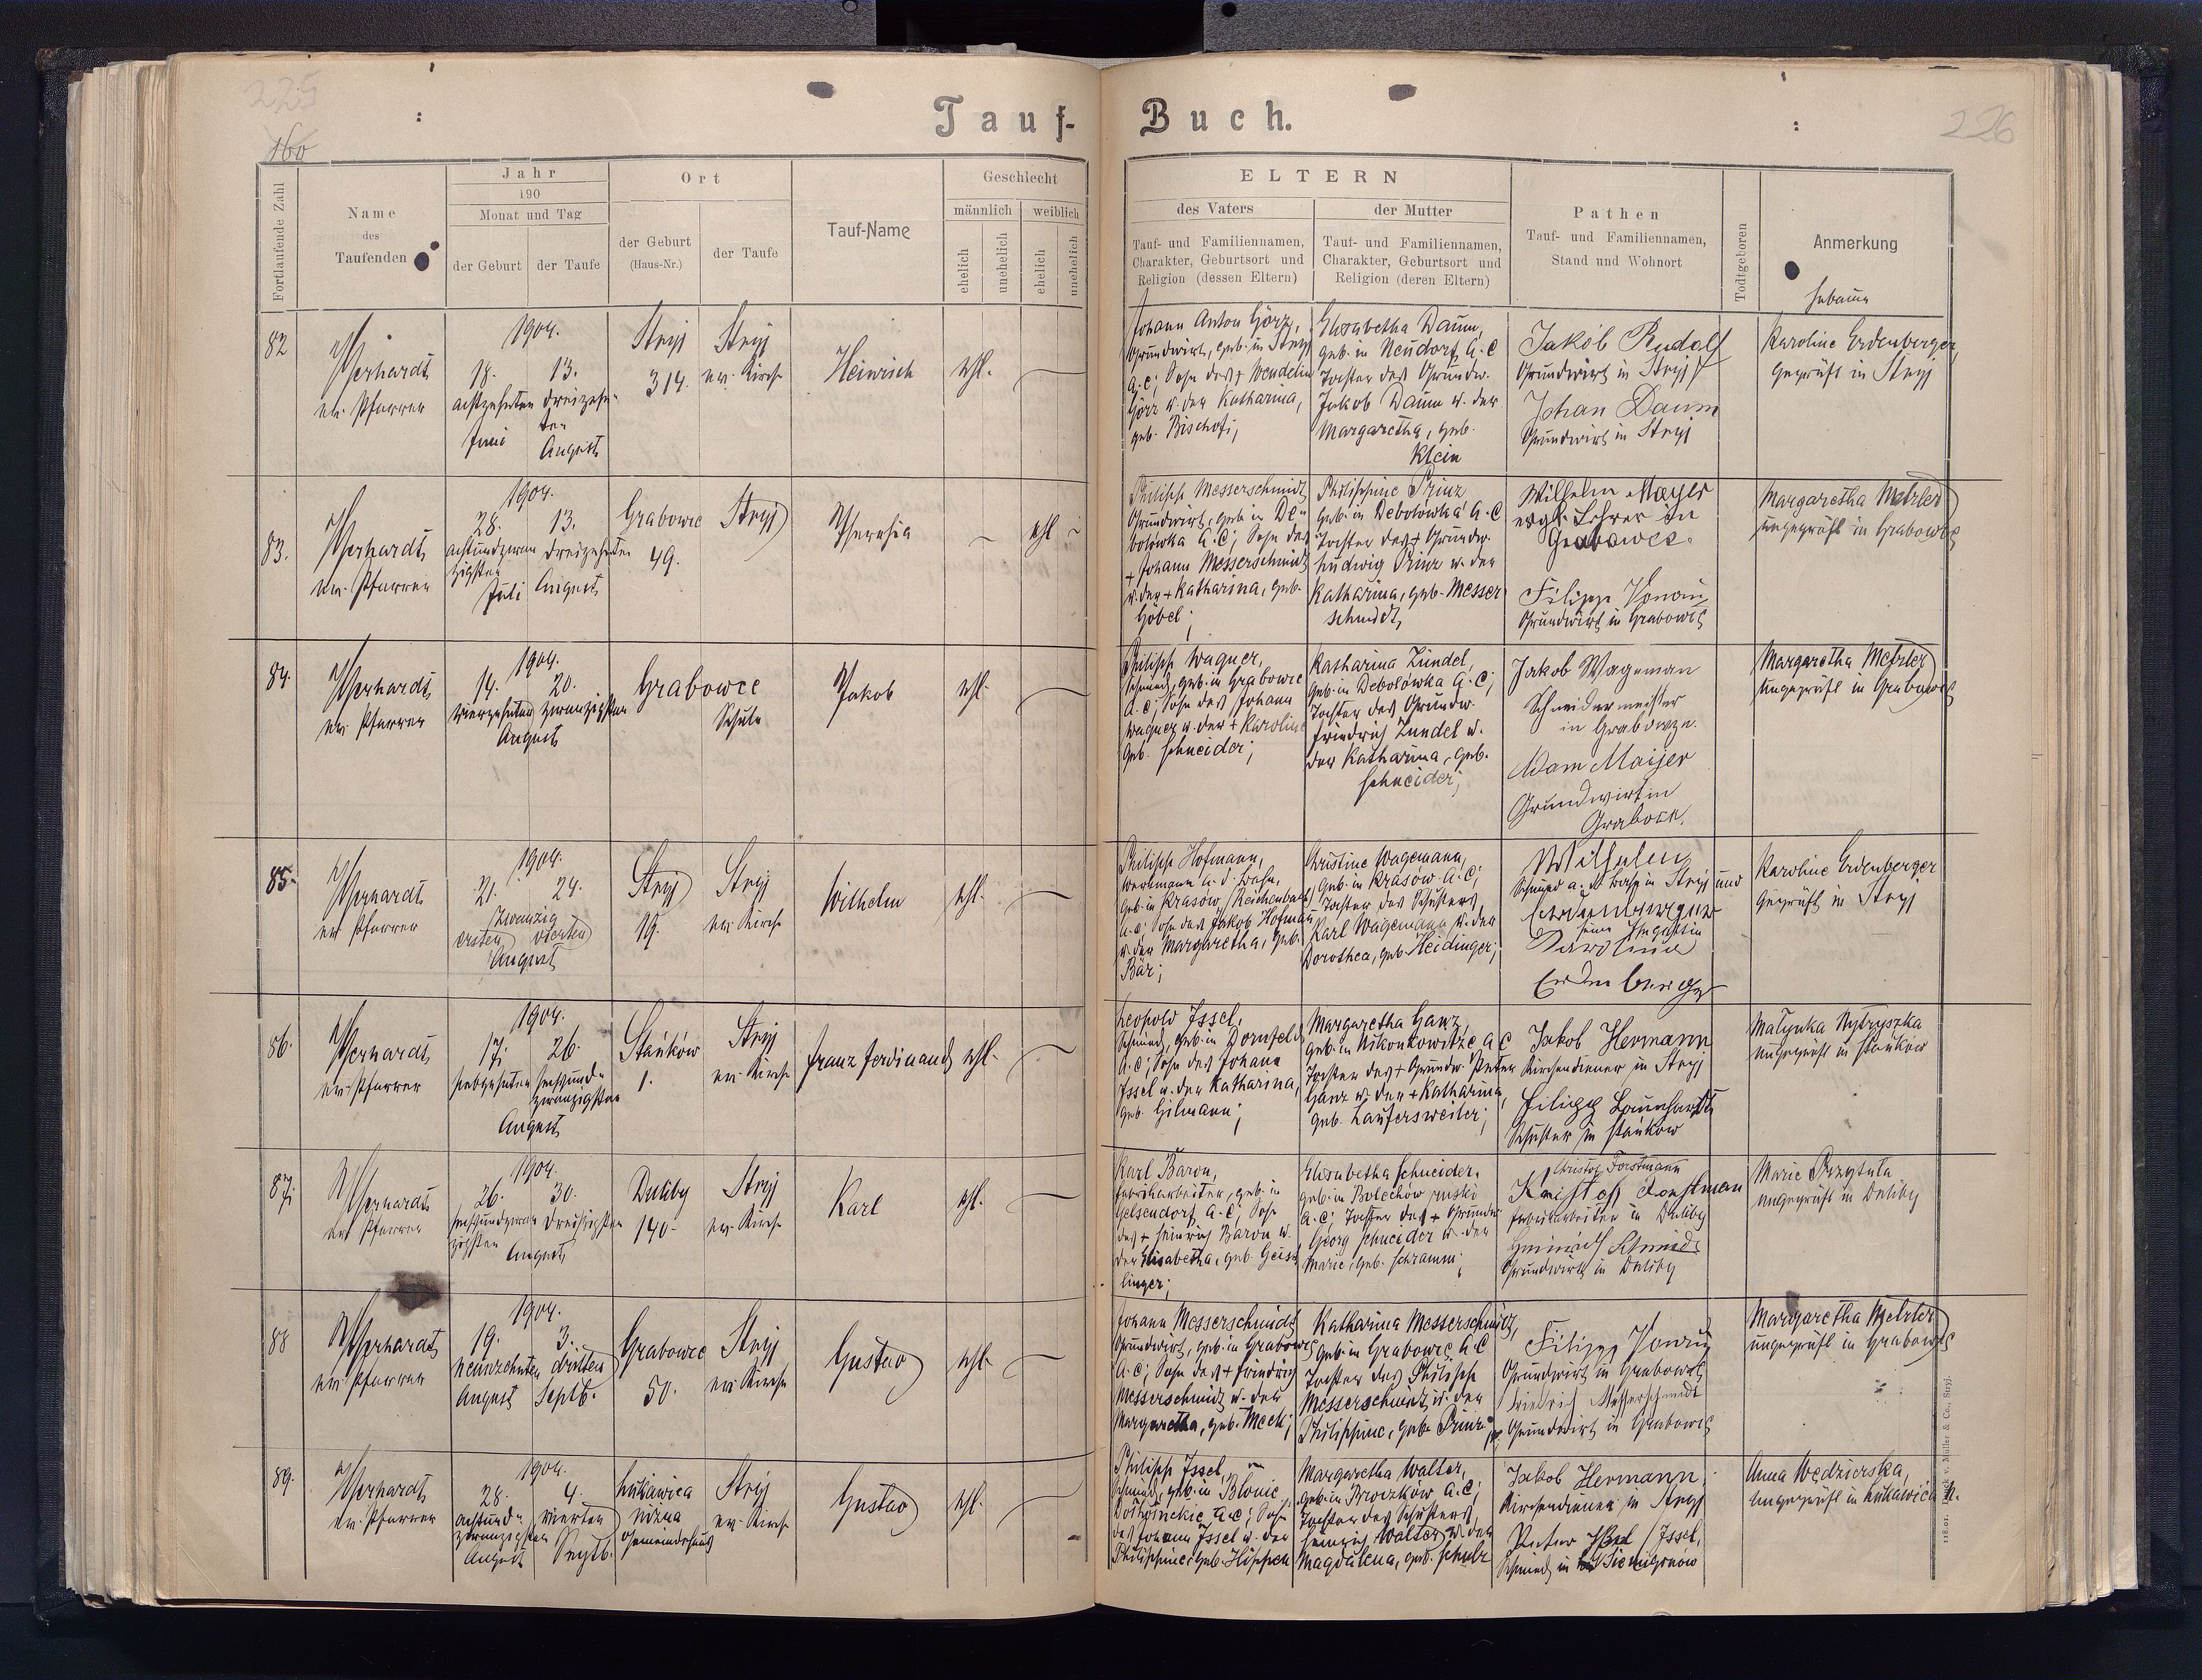 225
160
Tauf-Buch.
226
Fortlaufende Zahl
Name des Taufenden
Jahr 190
Monat und Tag
der Geburt
der Taufe
Ort
der Geburt (Haus-Nr.)
der Taufe
Tauf-Name
Geschlecht
männlich
weiblich
ehelich
unehelich
ehelich
unehelich
ELTERN
des Vaters
Tauf- und Familiennamen,
Charakter, Geburtsort und
Religion (dessen Eltern)
der Mutter
Tauf- und Familiennamen,
Charakter, Geburtsort und
Religion (deren Eltern)
Pathen
Tauf- und Familiennamen,
Stand und Wohnort
Todtgeboren
Anmerkung
Hebamme
82
ev. Pfarrer
1904.
18. achtzehnten Juni
13. dreizehnten August
Stryj
314.
Stryj
ev. Kirche
Heinrich
ehl.
Johann Anton Görz,
Grundwirt, geb. in Stryj
A.C; Sohn des + Wendelin
Görz u. der Katharina,
geb. Bischof;
Elisabetha Daum,
geb. in Neudorf A.C
Tochter des Grundw.
Jakob Daum u. der
Margaretha, geb.
Klein
Jakob Rudolf
Grundwirt in Stryj
Johan Daum
Grundwirt in Stryj
Karoline Erdenberger,
geprüft in Stryj
83.
ev. Pfarrer
1904.
28. achtundzwanzigsten Juli
13. dreizehnten August
Grabowce
49.
Stryj
ehl
Philipp Messerschmidt
Grundwirt, geb. in De-
bolówka A.C; Sohn des
+ Johann Messerschmidt
u. der + Katharina, geb.
Göbel;
Philippine Prinz
geb. in Debolówka A.C
Tochter des + Grundw.
Ludwig Prinz u. der
Katharina, geb. Messer
schmidt,
Wilhelm Mayer
evgl. Lehrer in
Grabowce.
Filipp
Grundwirt in Grabowce
Margaretha Metzler
ungeprüft in Grabowce
84.
ev. Pfarrer
1904.
14. vierzehnten
20. zwanzigsten
August
Grabowce
Schule
Jakob
ehl.
Philipp Wagner,
Schmied, geb. in Grabowce
A.C; Sohn des Johann
Wagner u. der + Karoline
geb. Schneider;
Katharina Zündel,
geb. in Debolówka A.C;
Tochter des Grundw.
Friedrich Zündel u.
der Katharina, geb.
Schneider;
Jakob Wageman
Schneidermeister
in Grabowze.
Adam Maijer
Grundwirt in
Margaretha Metzler
ungeprüft in Grabowce
85.
ev. Pfarrer
1904.
21. 24.
zwanzig
ersten vierten
August
Stryj
19.
Stryj
ev. Kirche
Wilhelm
ehl.
Philipp Hofmann,
Werkmann a. d. Bahn,
geb. in Krasów, (Reichenbach)
A.C; Sohn des Jakob Hofmann
u. der Margaretha, geb.
Bär;
Christine Wagemann,
geb. in Krasów A.C;
Tochter des Schusters,
Karl Wagemann u. der
Dorothea, geb. Heidinger;
Wilhelm
Schmied a. d. Bahn in Stryj und
seine Ehegattin
Karoline
Erdenberger
Karoline Erdenberger
geprüft in Stryj
86.
ev. Pfarrer
1904.
17. siebzehnten
26. sechsundzwanzigsten
August
Stańków
1.
Stryj
ev. Kirche
Franz Ferdinand
ehl.
Leopold Issel,
Schmied, geb. in Dornfeld
A.C; Sohn des Johann
Issel u. der Katharina,
geb. Gilmann;
Margaretha Ganz
geb. in Nikonkowitze A.C
Tochter des + Grundw. Peter
Ganz u. der + Katharina,
geb. Laufersweiler;
Jakob Hermann
Kirchendiener in Stryj
Filipp
Schuster in Stańków
ungeprüft in Stańków
87.
ev. Pfarrer
1904.
26. sechsundzwanzigsten
30. dreißigsten
August
Duliby
140.
Stryj
ev. Kirche
Karl
ehl.
Karl Baron,
Fabriksarbeiter, geb. in
Gelsendorf A.C; Sohn
des + Heinrich Baron u.
der Elisabetha, geb. Geiss
linger;
Elisabetha Schneider,
geb. in Bolechów ruski
A.C; Tochter des + Grundw.
Georg Schneider u. der
Marie, geb. Schramm;
Christof Forstmann
Kristof Forstman
Fabriksarbeiter in Duliby
Heinrich Schmidt
Grundwirt in Duliby
Marie Przystula
ungeprüft in Duliby
88
ev. Pfarrer
1904.
19. neunzehnten August
3. dritten Septb.
Grabowce
50.
Stryj
ev. Kirche
Gustav
ehl.
Johann Messerschmidt
Grundwirt, geb. in Grabowce
A.C; Sohn des + Friedrich
Messerschmidt u. der
Margaretha, geb. Meck;
Katharina Messerschmidt,
geb. in Grabowce A.C
Tochter des Philipp
Messerschmidt u. der
Philippine, geb. Prinz;
Filipp
Grundwirt in Grabowce
Friedrich Messerschmidt
Grundwirt in Grabowce
Margaretha Metzler
ungeprüft in Grabowce
89.
ev. Pfarrer
1904.
28. achtundzwanzigsten August
4. vierten Septb.
Łukawica
niżna
Gemeindehaus
Stryj
ev. Kirche
Gustav
ehl.
Philipp Issel,
Schmied, geb. in Błonie
A.C; Sohn
des Johann Issel u. der
Philippine, geb. Hippen
Margaretha Walter,
geb. in Brzozków A.C;
Tochter des Schusters,
Heinrich Walter u. der
Magdalena, geb. Schulz
Jakob Hermann,
Kirchendiener in Stryj
Peter Issel,
Schmied in
Anna Wędzierska,
ungeprüft in Łukawica n.
118.01. Druck v. Müller & Co., Stryj.